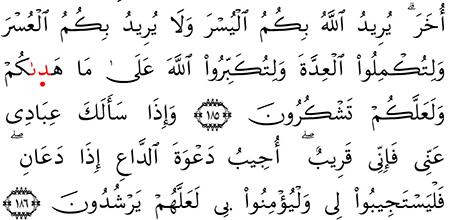 أُخَرَۗ يُرِيدُ ٱللَّهُ بِكُمُ ٱلۡيُسۡرَ وَلَا يُرِيدُ بِكُمُ ٱلۡعُسۡرَ
وَلِتُكۡمِلُواْ ٱلۡعِدَّةَ وَلِتُكَبِّرُواْ ٱللَّهَ عَلَىٰ مَا هَدٜىٰكُمۡ
وَلَعَلَّكُمۡ تَشۡكُرُونَ ١٨٥ وَإِذَا سَأَلَكَ عِبَادِي
عَنِّي فَإِنِّي قَرِيبٌۖ أُجِيبُ دَعۡوَةَ ٱلدَّاعِ إِذَا دَعَانِۖ
فَلۡيَسۡتَجِيبُواْ لِي وَلۡيُؤۡمِنُواْ بِي لَعَلَّهُمۡ يَرۡشُدُونَ ١٨٦